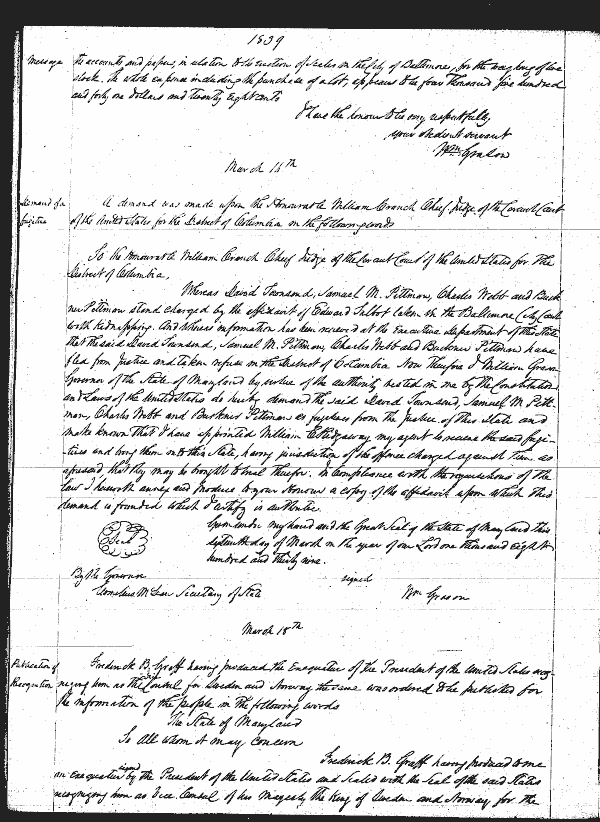 1839
Message
the accounts and papers, in relation to the erection of Scales in the City of Baltimore, for the weighing of live
stock. The whole expense including the purchase of a lot, appears to be four thousand five hundred
and forty one dollars and twenty eight cents
I have the honour to be very respectfully
your obedient servant
Wm. Grason
March 16th
Demand of a
fugitive
A demand was made upon the Honourable William Cranch Chief Judge of the Circuit Court
of the United States for the District of Columbia in the following words
To the Honourable William Cranch Chief Judge of the Circuit Court of the United States for the
District of Columbia,
Whereas David Townsend, Samuel M. Pittman, Charles Webb and Buck
ner Pittman stand charged by the affidavit of Edward Talbot taken in the Baltimore City Court
with kidnapping. And whereas information has been received at the Executive department of this State
that the said David Townsend, Samuel M. Pittman, Charles Webb and Buckner Pittman have
fled from Justice and taken refuge in the District of Columbia Now Therefore I William Grason
Governor of the State of Maryland by virtue of the authority vested in me by the Constitution
and Laws of the United States do hereby demand the said David Townsend, Samuel M. Pitt
man, Charles Webb and Buckner Pittman as fugitives from the Justice of this State and
make known that I have appointed William Ridgaway my agent to receive the said fugi-
tives and bring them unto this State, having jurisdiction of the offence charged against them as
aforesaid that they may be brought to trial therefor. In compliance with the requisitions of the
law I herewith annex and produce to your Honour a copy of the affidavit upon which this
demand is founded which I certify is authentic.
Seal
Given under my hand and the Great Seal of the State of Maryland this
sixteenth day of March in the year of our Lord one thousand eight
hundred and thirty nine.
By the Governor
signed
Cornelius McLean Secretary of State
Wm Grason
March 18th
Publication of
Recognition
Frederick B. Graff having produced the Exequatur of the President of the United States recog-
nizing him as Vice Consul for Sweden and Norway the same was ordered to be published for
the information of the people in the following words
The State of Maryland
To All whom it may concern
Frederick B. Graff having produced to me
an exequatur signed by the President of the United States and Sealed with the Seal of the said States
recognizing him as Vice Consul of his Majesty the King of Sweden and Norway for the